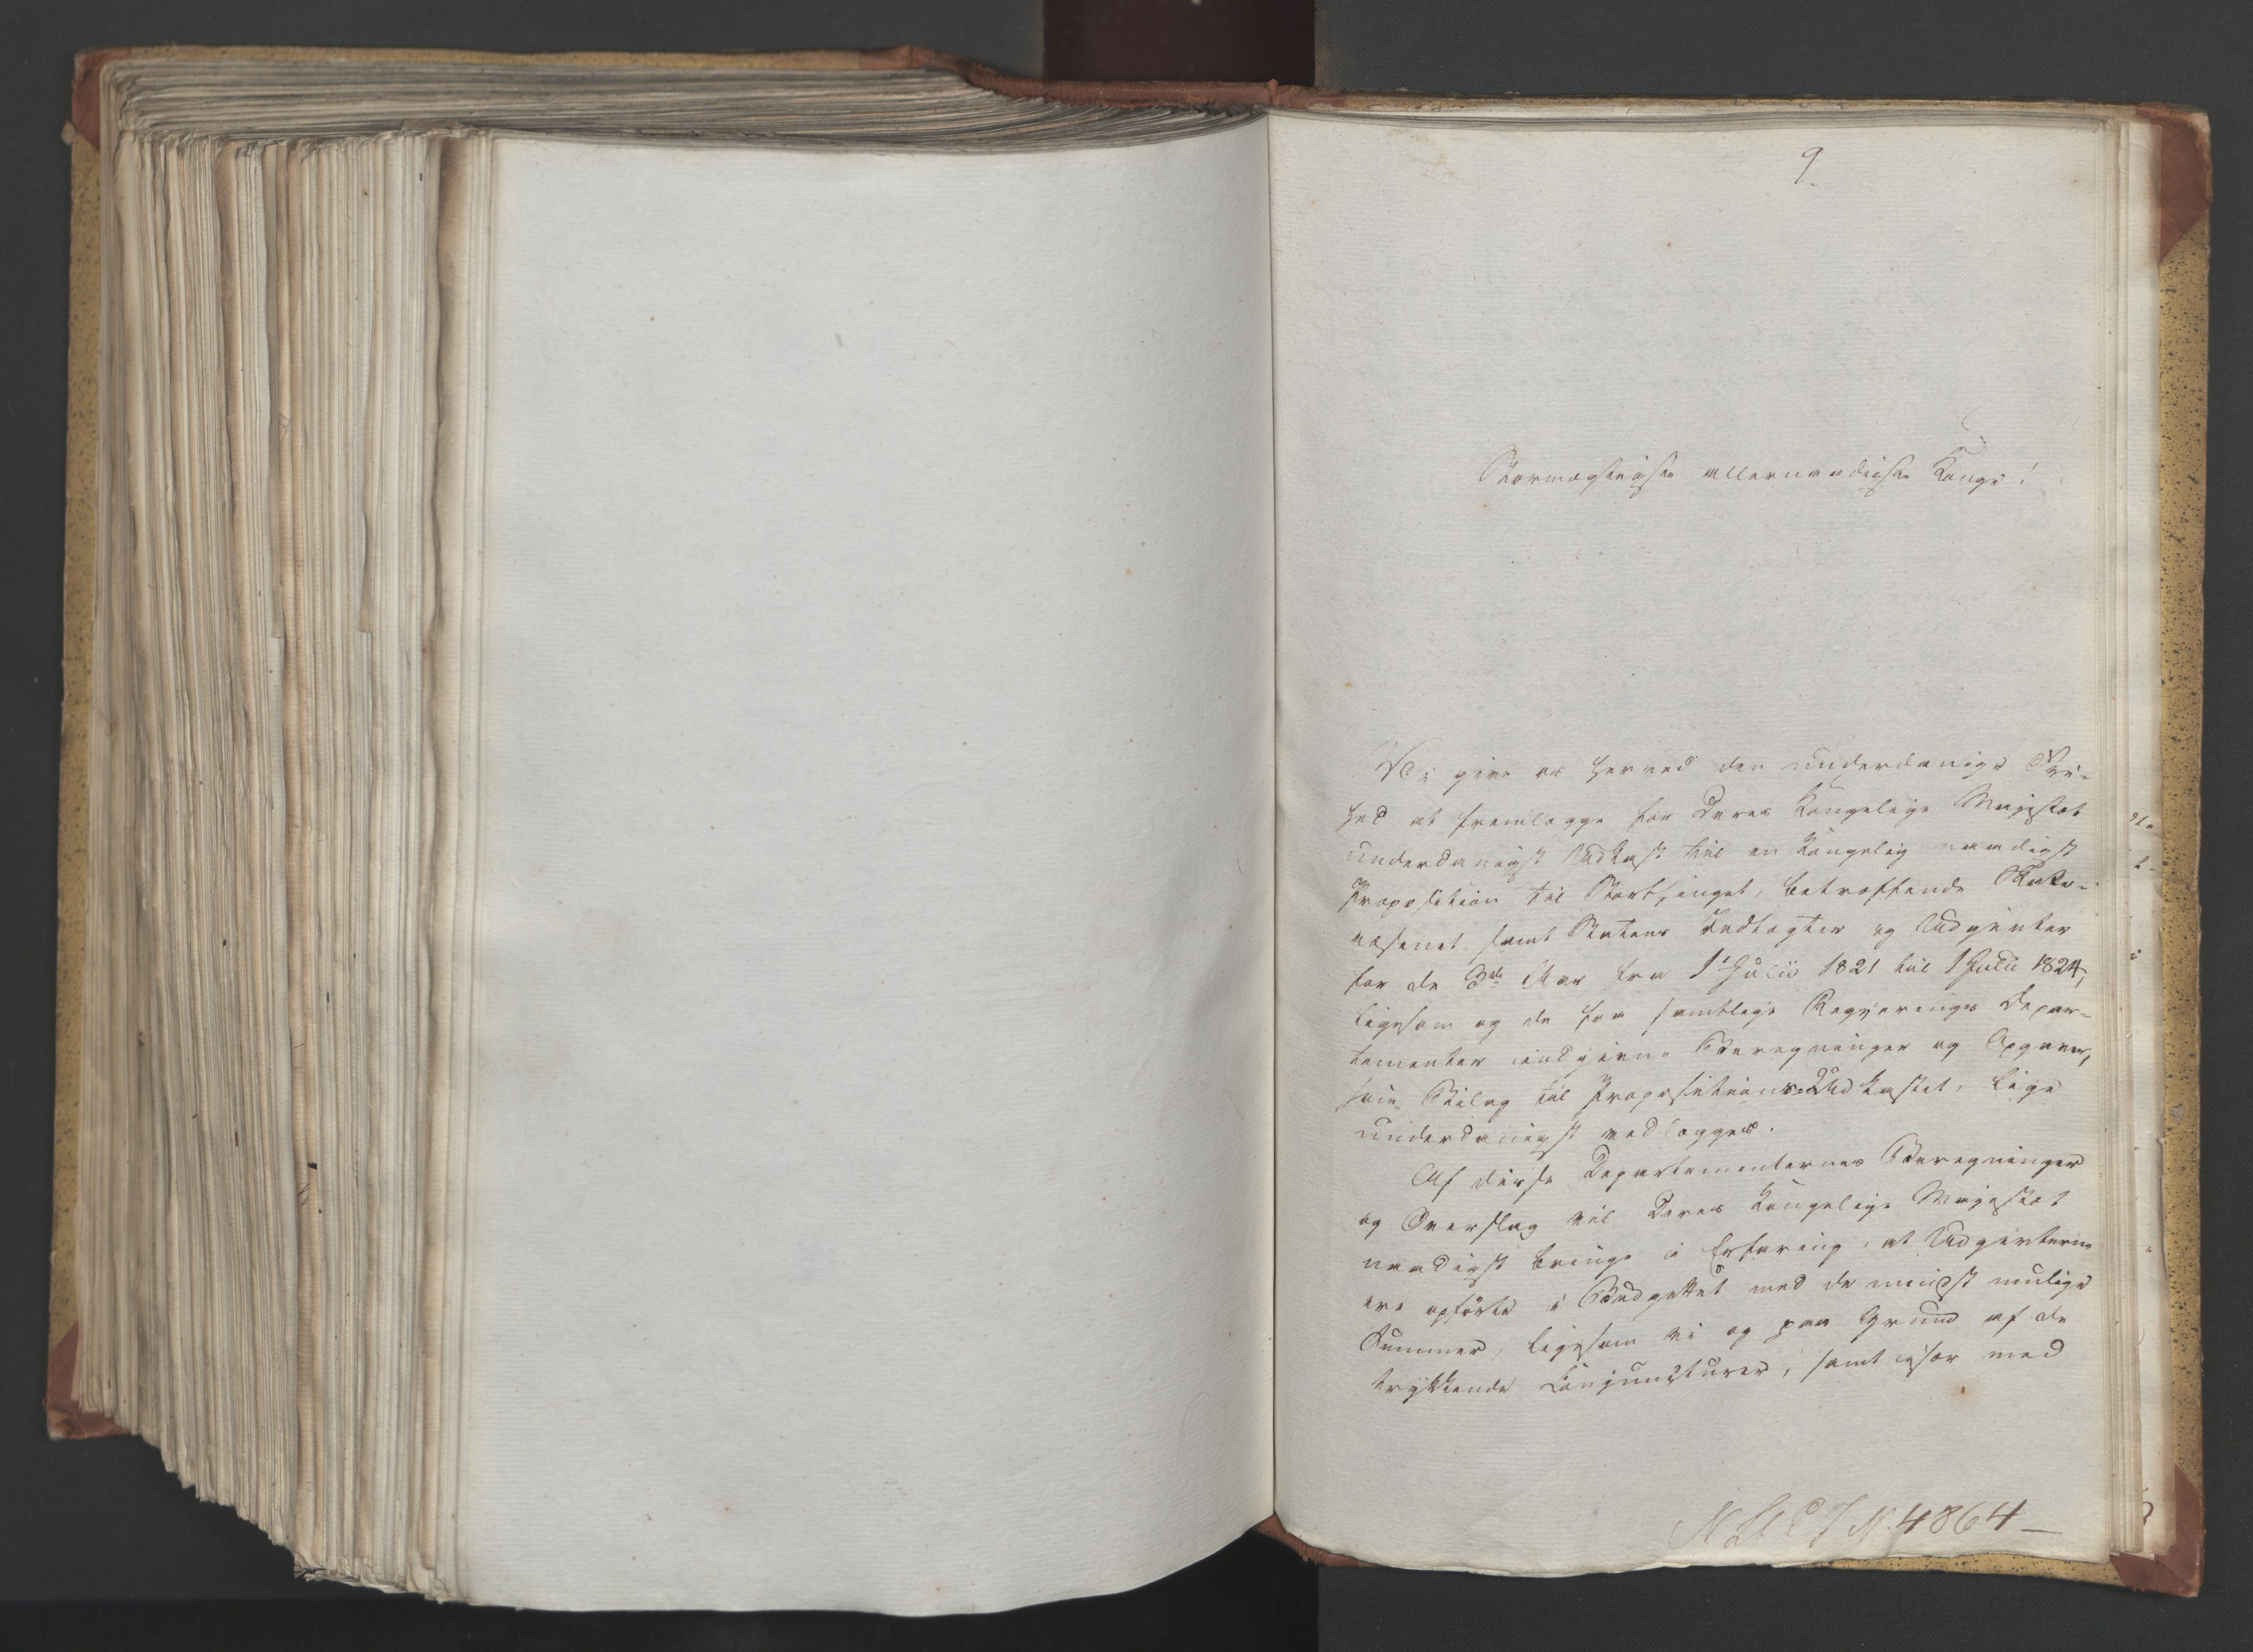 9.
Stormægtigste allernaadigste Konge!
Vi give os herved den underdanige Fri-
hed at fremlægge for Deres Kongelige Majestæt
underdanigst Udkast til en Kongelig naadigst
Proposition til Storthinget, betræffende Skatte-
væsenet samt Statens Indtægter og Udgivter
for de 3de Aar fra 1 Julii 1821 til 1 Julii 1824,
ligesom og de fra samtlige Regjerings Depar-
tementer indgivne Beregninger og Opgaver,
som Bilag til Propositions-Udkastet, lige
underdanigst vedlægges.
Af disse Departementernes Beregninger
og Overslag vil Deres Kongelige Majestæt
naadigst bringe i Erfaring, at Udgivterne
ere opførte i Budgettet med de mindst mulige
Summer, ligesom vi og paa Grund af de
trykkende Conjuncturer, samt især med
4864